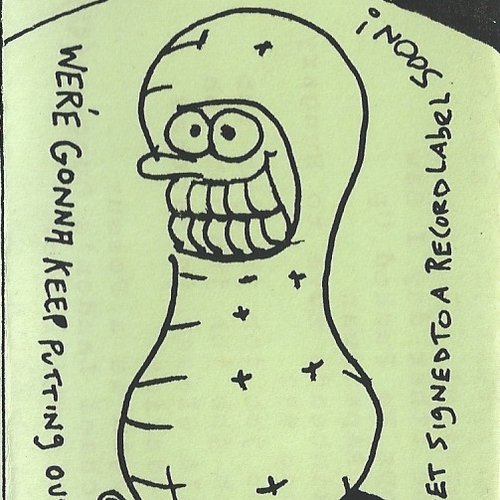 WE'RE GONNA KEEP PUTTING OU
ET SIGNED TO A RECORD LABEL SOON!